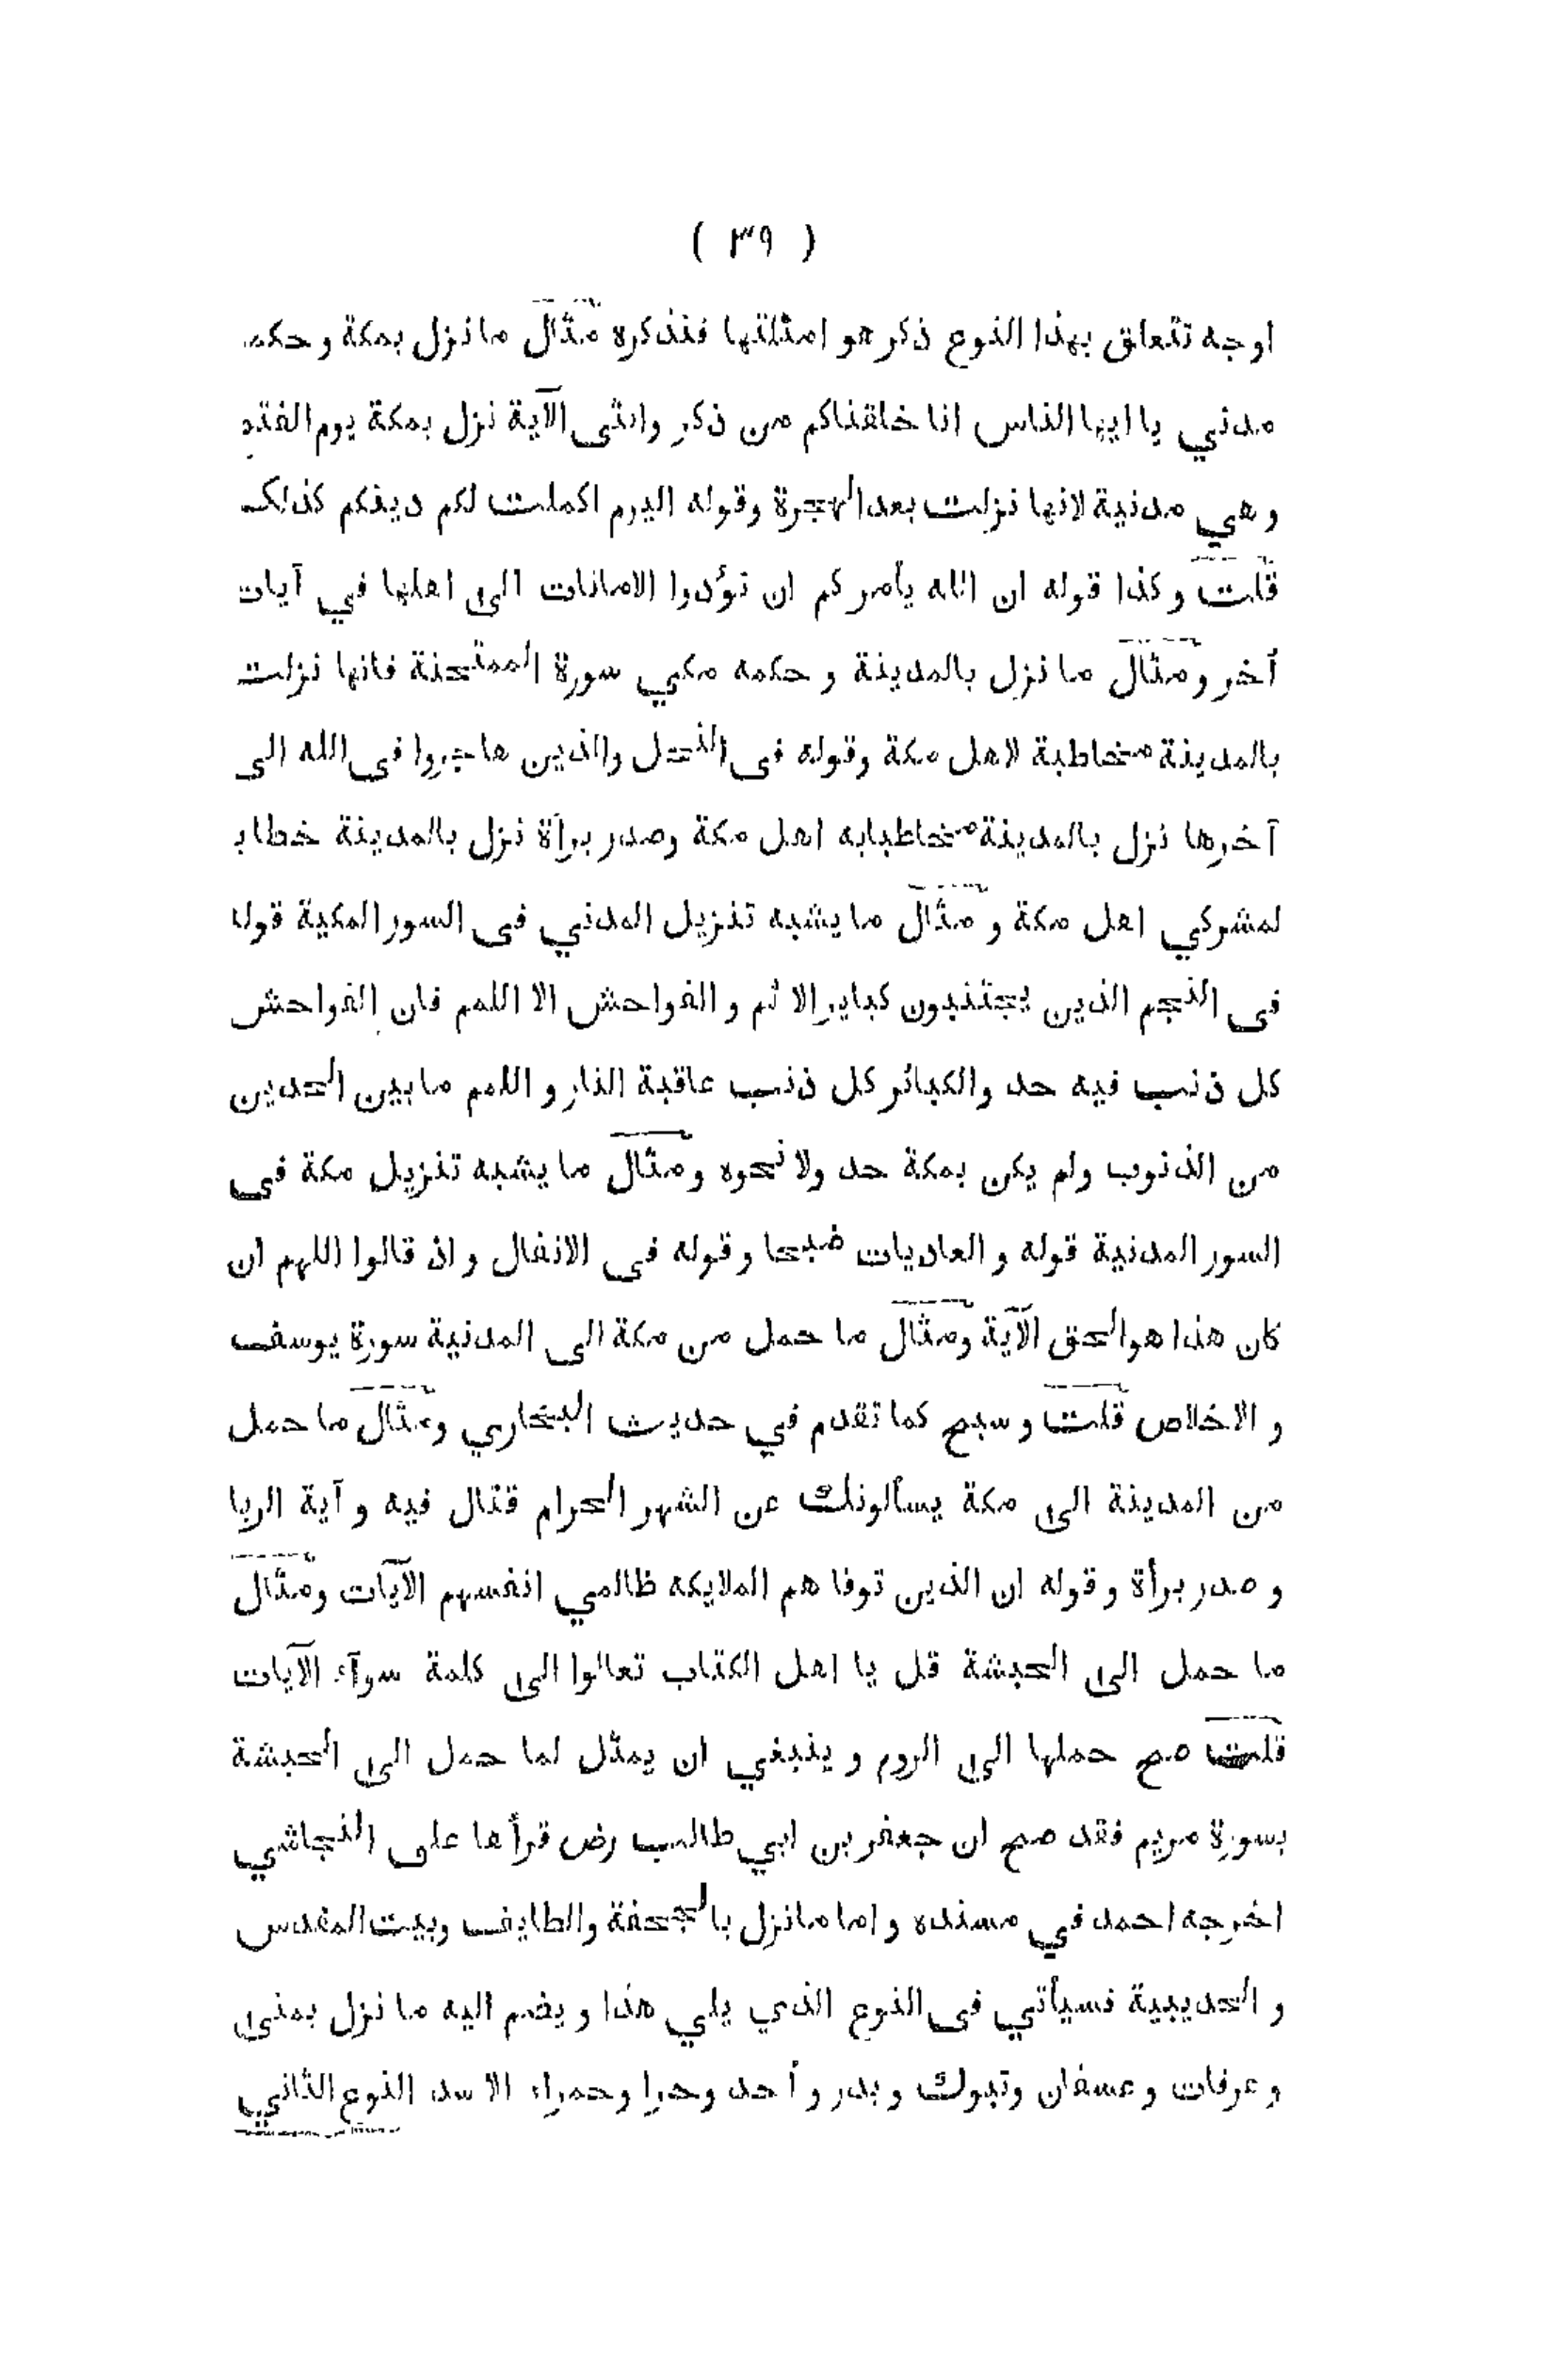 ( ٣٩ )
اوجه تتعلق بهذا النوع ذكر هو امثلتها فنذكره مثال ما نزل بمكة و حكمه
مدني يا ايها الناس انا خلقناكم من ذكر وانثى الآية نزل بمكة يوم الفتح
و هي مدنية لانها نزلت بعد الهجرة وقوله اليوم اكملت لكم دينكم كذلك
قلت و كذا قوله ان الله يأمركم ان تؤدوا الامانات الى اهلها في آيات
أخر ومثال ما نزل بالمدينة و حكمه مكي سورة الممتحنة فانها نزلت
بالمدينة مخاطبة لاهل مكة وقوله فى النحل والذين هاجروا فى الله الى
آخرها نزل بالمدينة مخاطبابه اهل مكة وصدر برأة نزل بالمدينة خطابا
لمشركي اهل مكة و مثال ما يشبه تنزيل المدني فى السور المكية قوله
فى النجم الذين يجتنبون كباير الاثم و الفواحش الا اللمم فان الفواحش
كل ذنب فيه حد والكبائر كل ذنب عاقبة النار و اللمم ما بين الحدين
من الذنوب ولم يكن بمكة حد ولا نحوه ومثال ما يشبه تنزيل مكة فى
السور المدنية قوله و العاديات ضبحا وقوله فى الانفال و اذ قالوا اللهم ان
كان هذا هو الحق الآية ومثال ما حمل من مكة الى المدنية سورة يوسف
و الاخلاص قلت و سبح كما تقدم في حديث البخاري ومثال ما حمل
من المدينة الى مكة يسألونك عن الشهر الحرام قتال فيه و آية الربا
و صدر برأة وقوله ان الذين توفا هم الملايكه ظالمي انفسهم الآيات ومثال
ما حمل الى الحبشة قل يا اهل الكتاب تعالوا الى كلمة سوآء الآيات
قلت صح حملها الى الروم و ينبغي ان يمثل لما حمل الى الحبشة
بسورة مريم فقد صح ان جعفر بن ابي طالب رض قرأها على النجاشي
اخرجه احمد في مسنده و اما ما نزل بالجحفة والطايف وبيت المقدس
و الحديبية فسيأتي فى النوع الذي يلي هذا و يضم اليه ما نزل بمنى
و عرفات و عسفان وتبوك و بدر و أحد وحرا وحمراء الاسد النوع الثاني